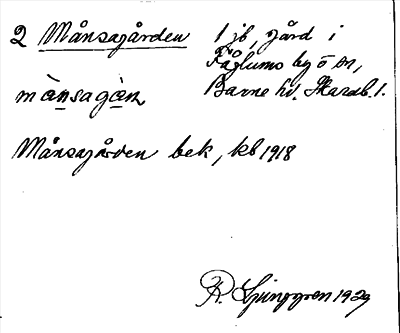 2 Månsagården 1 jb, gård i
Fåglums by o sn,
månsagàn Barne hd. Skarab. l.
Månsagården bek, kb 1918
R. Ljunggren 1929